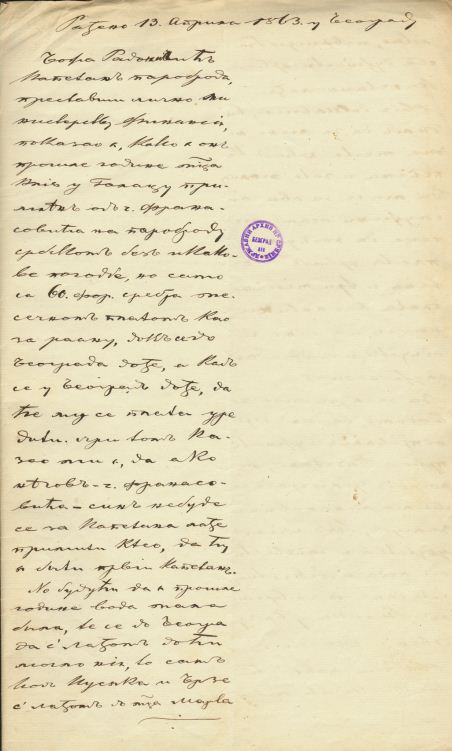 Рађено 13. Априла 1863. у Београду
Капетанъ пароброда,
преставши лично ми
нистерству Финансiй,
показао є, како є онъ
прошле године
у Галацу при-
млѣнъ одъ г. Франа-
совића на пароброду
србскомъ безъ икако-
ве погодбе, но само
са 60. фор. сребра ме-
сечномъ платомъ као
за раану, докъ се до
Београда дође, а кадъ
се у Београдъ дође, да
ће му се плата уре
дити. При томъ ка-
зао ми є, да ако
нѣговъ - г. Франасо-
вића - синъ небуде
се за Капетана лађе
примити ктео, да ћу
я бити првый Капетанъ.
Но будући да є прошле
године вода мала
была, те се до Београ
да с' лађомъ доћи
могло ніє, то самъ
кодъ Кусяка и Брзе
с' лађомъ до Марта
ДРЖАВНИ АРХИВ
БЕОГРАД